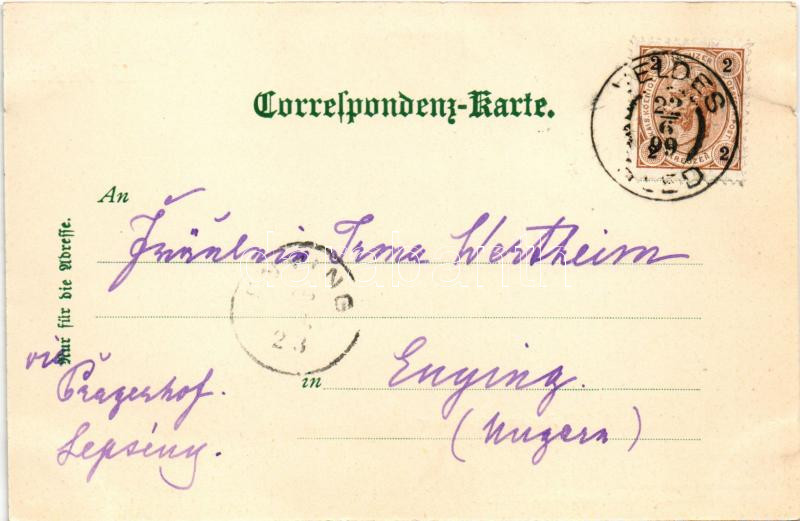 Correspondenz-Karte.
2 KREUZER 2
2
VELDES
22
6
99
An
Fräulein Irma Wertheim
Nur für die Adresse.
23
via
Pragerhof.
Lepsény.
in
Enying.
(Ungarn)